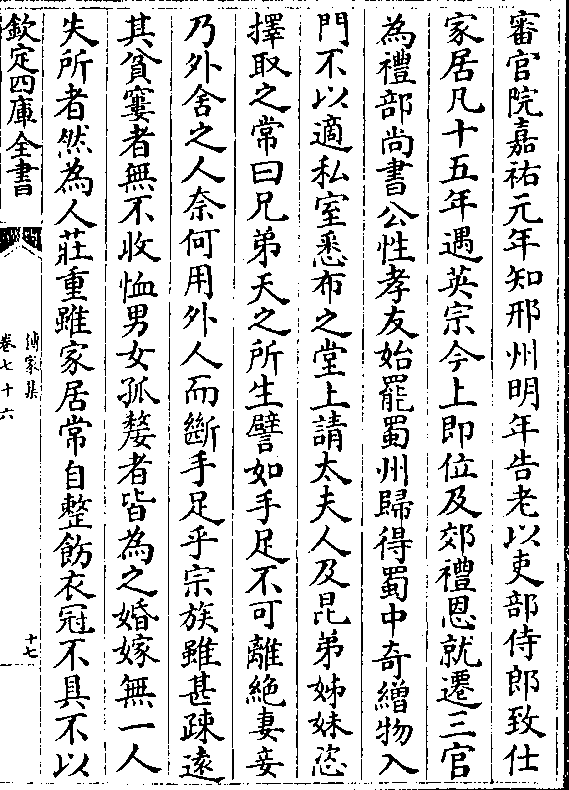 審官院嘉祐元年知邢州明年告老以吏部侍郎致仕
家居凡十五年遇英宗今上即位及郊禮恩就遷三官
為禮部尚書公性孝友始罷蜀州歸得蜀中奇繒物入
門不以適私室悉布之堂上請太夫人及昆弟姊妹恣
擇取之常曰兄弟天之所生譬如手足不可離絶妻妾
乃外舍之人奈何用外人而斷手足乎宗族雖甚疎遠
其貧窶者無不收恤男女孤嫠者皆為之婚嫁無一人
失所者然為人莊重雖家居常自整飭衣冠不具不以
欽定四庫全書
傳家集
卷七十六
十七